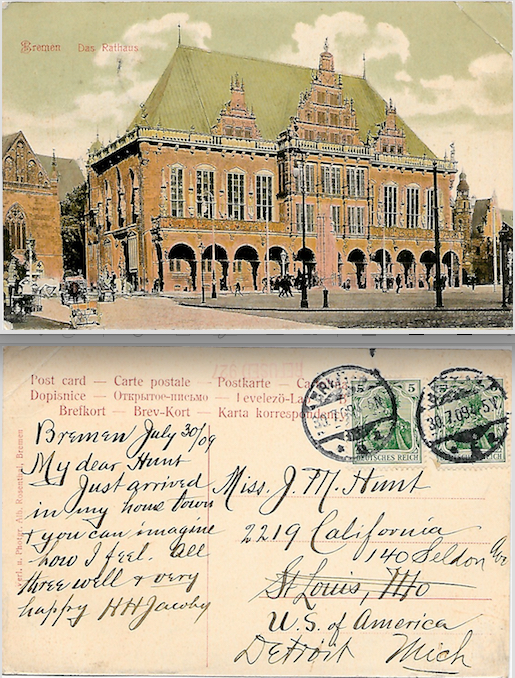 Bremen Das Rathaus
Post card — Carte postale — Postkarte —
Dopisnice — Открытое-письмо — Levelező-
Brefkort — Brev-Kort — Karta korrespondenc
Verl. u. Photogr. Alb. Rosenthal, Bremen
5
DEUTSCHES REICH
30.7.09
5
REICH
30.7.09
Bremen July 30/09
My dear Hunt
Just arrived
in my home town
& you can imagine
how I feel. All
three well & very
happy HHJacoby
Miss. J. M. Hunt
2219 California
140 Seldon Ave
St Louis, Mo
U.S. of America
Detroit Mich